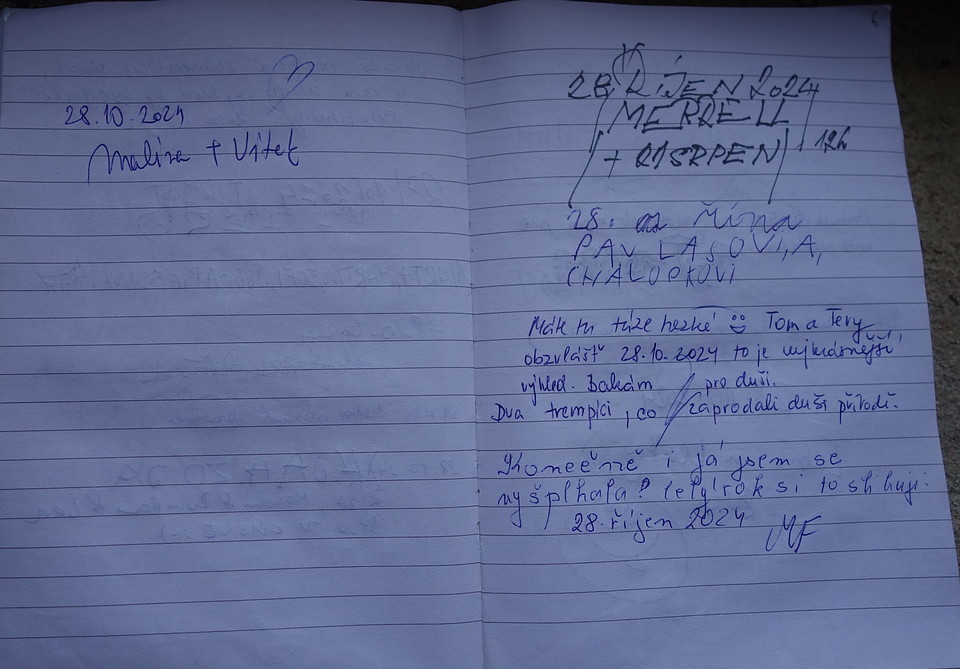 28.10.2024
Malina + Vítek
6
28. ŘÍJEN 2024
MERRELL
+ 21SRPEN 12h
28. října
PAVLASOVI, A,
CHALUPKOVI
Máte tu táze hezké Tom a Tery
obzvlášť 28.10.2024 to je nejkrásnější
výhled. Balzám pro duši.
Dva trempíci, co zaprodali duši přírodě.
Konečně i já jsem se
vyšplhala? Celý rok si to slibuji.
28. říjen 2024 MF